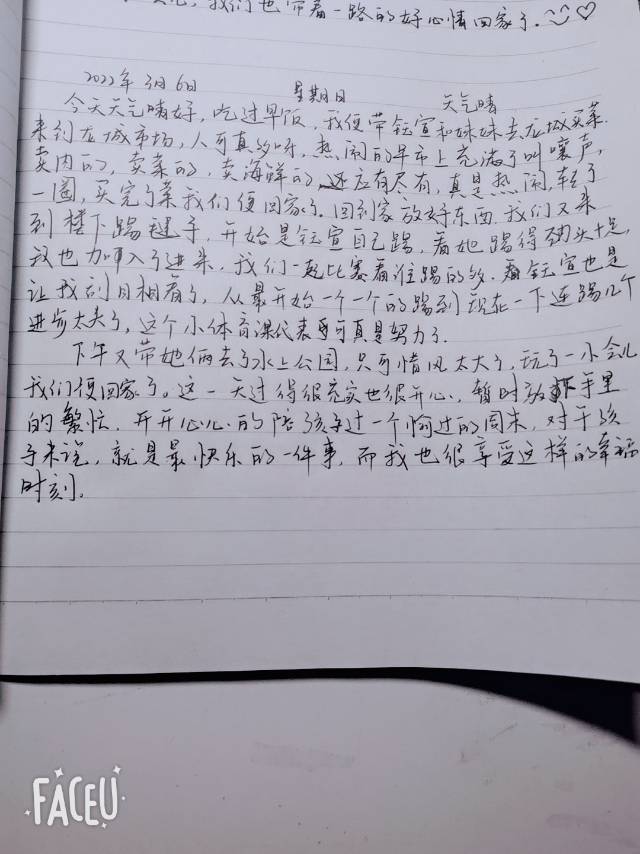 我们也带着一路的好心情回家了.
2022年3月6日 星期日 天气晴
今天天气晴好，吃过早饭，我便带钰宣和妹妹去龙城买菜.
来到龙城市场，人可真多呀，热闹的早市上充满了叫嚷声，
卖肉的，卖菜的，卖海鲜的，还应有尽有，真是热闹，转了
一圈，买完了菜我们便回家了.回到家放好东西，我们又来
到楼下踢毽子，开始是钰宣自己踢，看她踢得劲头十足，
我也加入了进来，我们一起比赛看谁踢的多.看钰宣也是
让我刮目相看了，从最开始一个一个的踢到现在一下连踢几个
进步太大了，这个小体育课代表可真是努力了.
下午又带她俩去了水上公园，只可惜风太大了，玩了一小会儿
我们便回家了。这一天过得很充实也很开心，暂时放下手里
的繁忙，开开心心的陪孩子过一个愉过的周末，对于孩
子来说，就是最快乐的一件事，而我也很享受这样的幸福
时刻.
FACEU